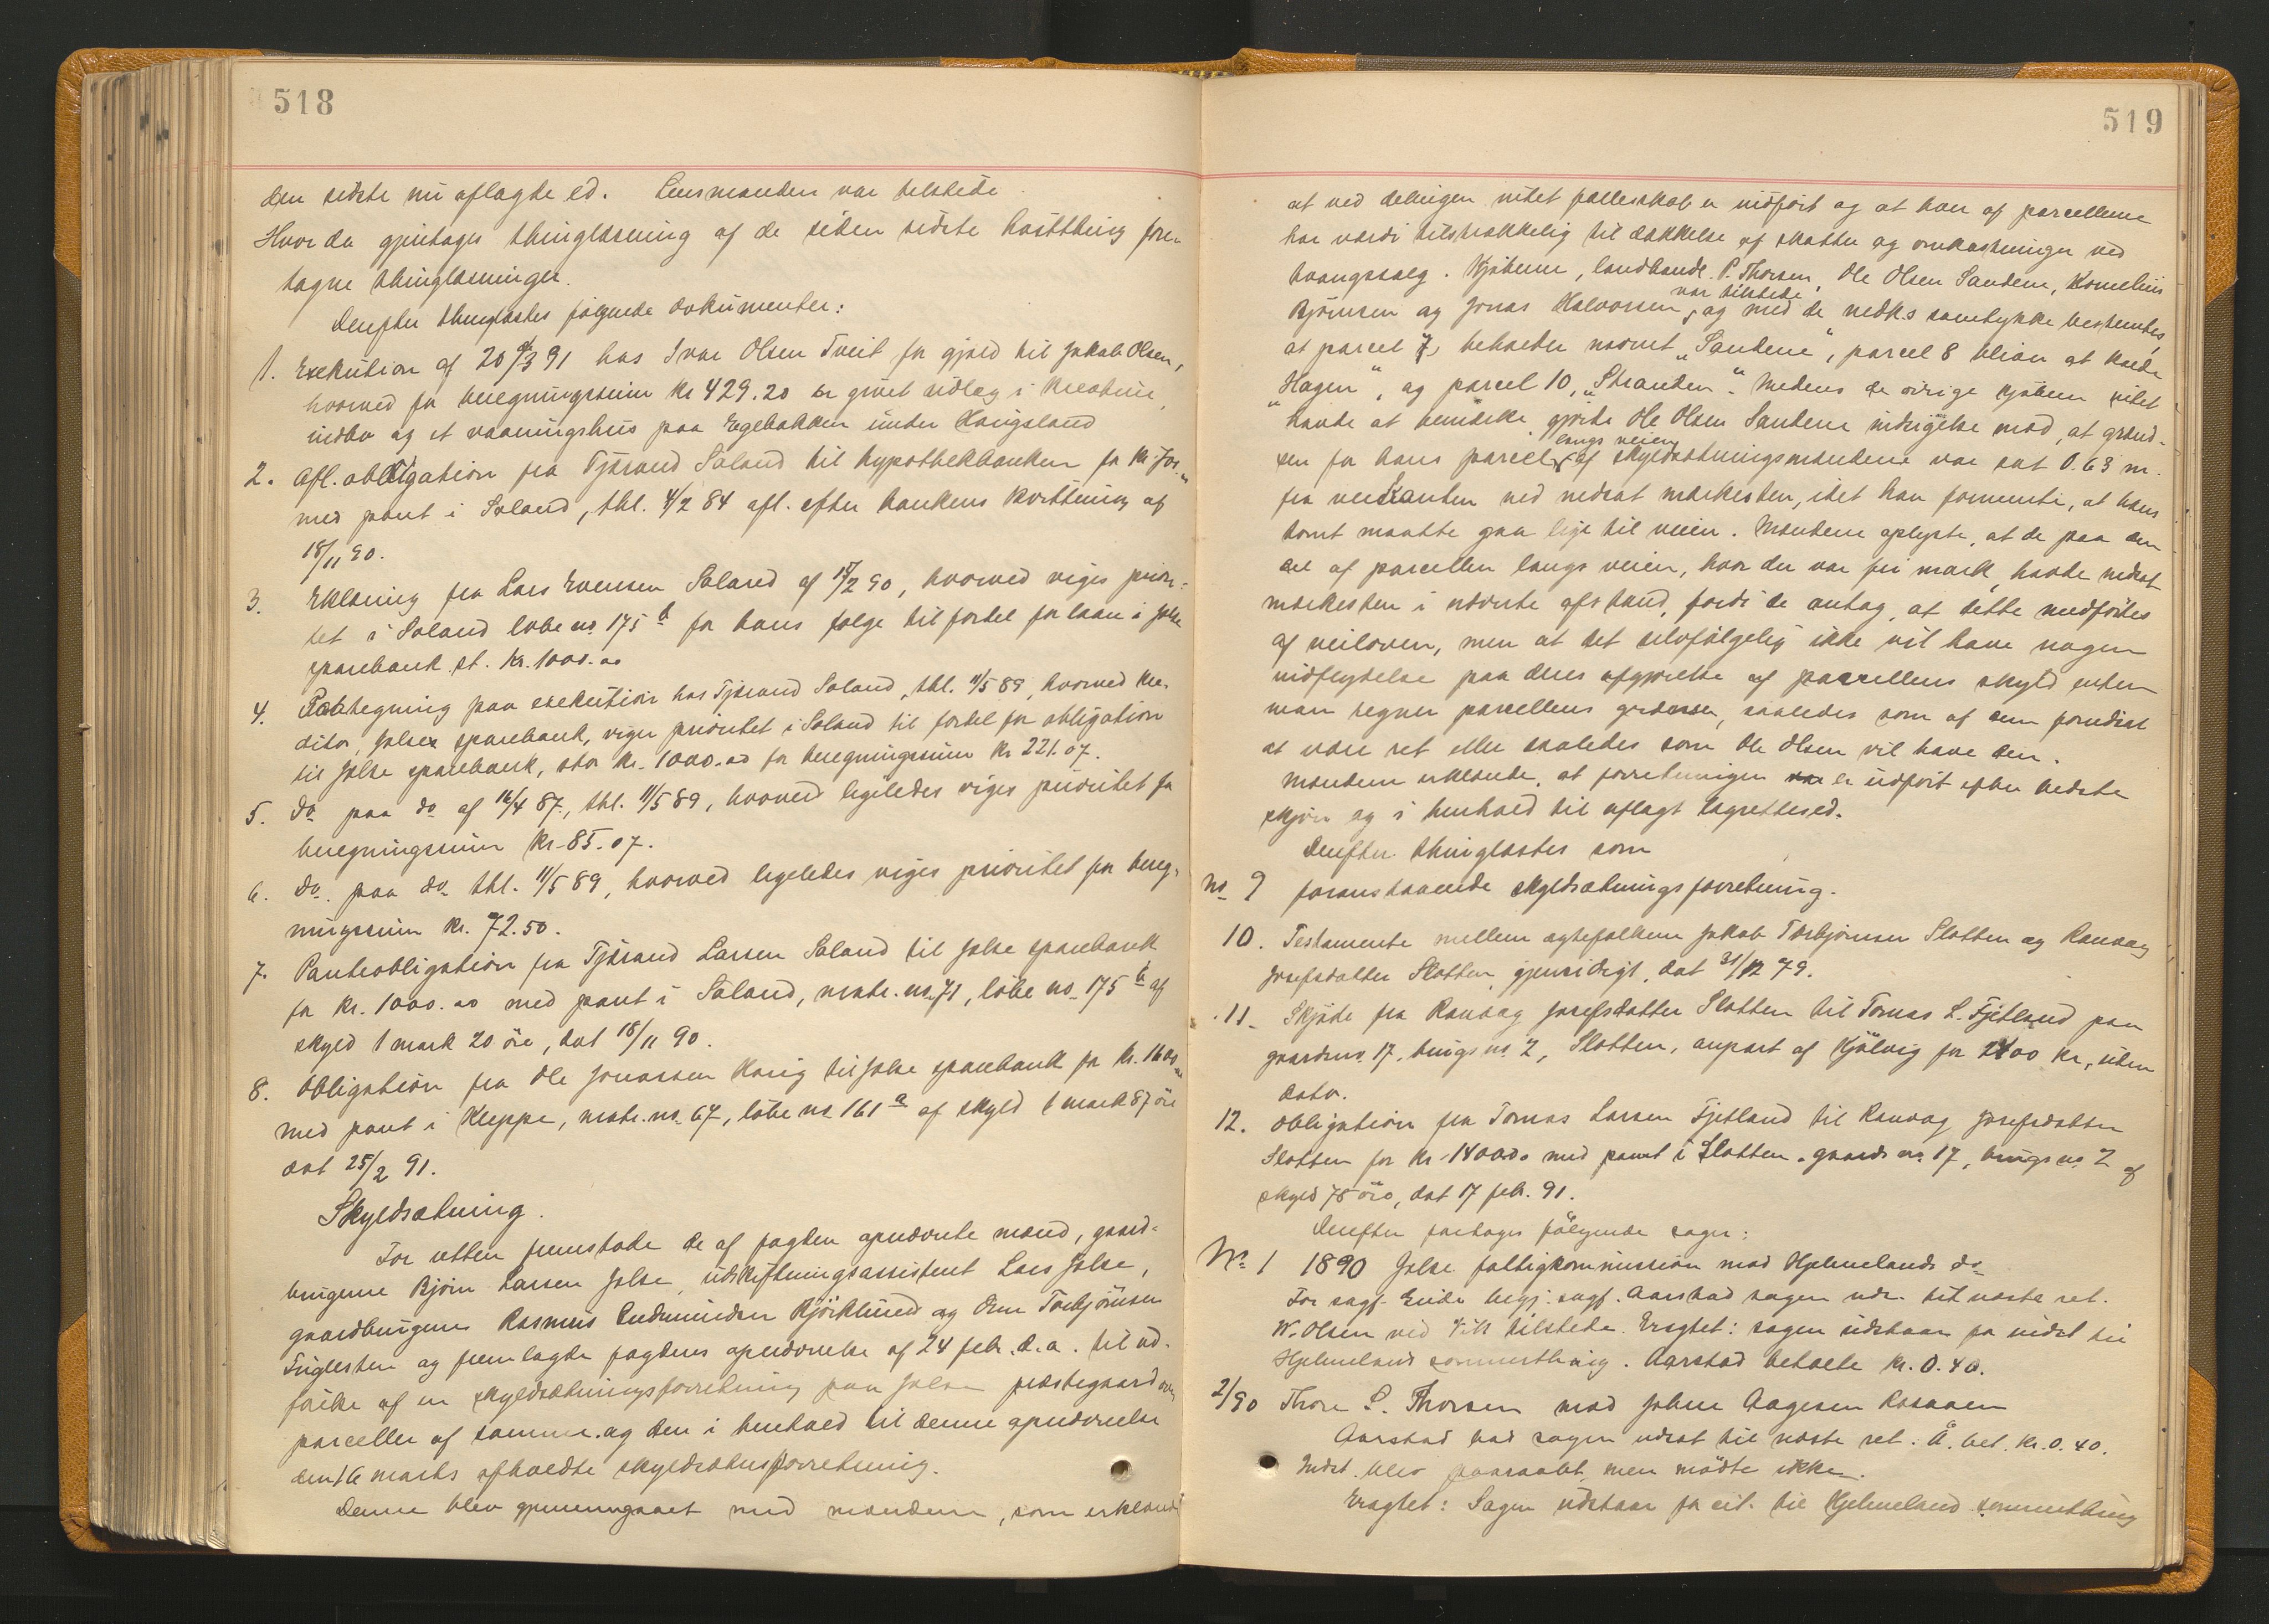 518
den sidste nu aflagde ed. Lensmanden var tilstede.
Hvorda gjentages thinglæsning af de siden sidste høstthing fore-
tagne thinglæsninger.
Derefter thinglæstes følgende dokumenter:
1. Exekution af 20/3 91 hos Ivar Olsen Tveit for gjæld til Jakob Olsen,
hvorved for beregningssum kr 429.20 er givet udlæg i kreature,
indbo og et vaaningshus paa Egebakken under Haugsland
2. Afl. obligation fra Tjärand Søland til hypothekbanken for kr.
med pant i Søland, thl. 4/2 84 afl. efter bankens kvittering af
18/11 90.
3. Erklæring fra Lars Evensen Søland af 17/2 90, hvorved viges priori-
tet i Søland løbe no. 175 b for hans følge til fordel for laan i Jelse
sparebank st. kr. 1000.00
4. Paategning paa exekution hos Tjärand Søland, thl. 11/5 89, hvorved kre-
ditor, Jelse sparebank, viger prioritet i Søland til fordel for obligation
til Jelse sparebank, stor kr. 1000.00 for beregningssum kr 221.07.
5. do paa do af 16/4 87, thl. 11/5 89, hvorved ligeledes viges prioritet for
beregningssum kr. 85.07.
6. do. paa do thl. 11/5 89, hvorved ligeledes viges prioritet for bereg-
ningssum kr. 72.50.
7. Panteobligation fra Tjärand Larsen Søland til Jelse sparebank
for kr. 1000.00 med pant i Søland, matr. no. 71, løbe no. 175 b af
skyld 1 mark 20 øre, dat 18/11 90.
8. Obligation fra Ole Jonassen til Jelse sparebank for kr. 1600
med pant i Kleppe, matr. no. 67, løbe no. 161 a af skyld 1 mark 87 øre
dat 25/2 91.
Skyldsætning.
For retten fremstode de af fogden opnævnte mænd, gaard-
brugerne Björn Larsen Jelse, udskiftningsassistent Lars Jelse,
gaardbrugerne Rasmus Gudmundsen Björklund og Torbjörnsen
Fuglesten og fremlagde fogdens opnævnelse af 24 febr. d.a. til ud-
førelse af en skyldsætningsforretning paa Jelse præstegaard
parceller af samme og den i henhold til denne opnævnelse
den 16 marts afholdte skyldsætnforretning.
Denne blev gjennemgaaet med mændene, som erklærede
519
at ved delingen intet fællesskab er indført og at hver af parcellerne
har værdi tilstrækkelig til dækkelse af skatter og omkostninger ved
tvangssalg. Kjøberne, landhandl. P. Thorsen, Ole Olsen Sandene, Kornelius
Björnsen og Jonas Halvorsen var tilstede, og med de nedks samtykke bestemtes,
at parcel 7, beholder navnet „Sandene", parcel 8 bliver at kalde
„Hagen", og parcel 10, „Stranden". Medens de øvrige kjøbere intet
havde at bemærke, gjorde Ole Olsen Sandene indsigelse mod, at grænd-
sen for hans parcel langs veien af skyldsætningsmændene var sat 0.63 m.
fra veikanten ved nedsat markesten, idet han formente, at hans
tomt maatte gaa lige til veien. Mændene oplyste, at de paa den
del af parcellen langs veien, hvor der var fri mark, havde nedsat
markesten i nævnte afstand, fordi de antog, at dette medførtes
af veiloven, men at det selvfølgelig ikke vil have nogen
indflydelse paa deres afgjørelse af parcellens skyld enten
man regner parcellens grændser, saaledes som af dem forudsat
at være ret eller saaledes som Ole Olsen vil have den.
Mændene erklærede, at forretningen er udført efter bedste
skjøn og i henhold til aflagt lagrettesed.
Derefter thinglæstes som
no 9 foranstaaende skyldsætningsforretning.
10. Testamente mellem ægtefolkene Jakob Torbjörnsen Slotten og Ranvag
Josefsdatter Slotten, gjensidigt, dat 31/12 79.
11. Skjøde fra Ranvag Josefsdatter Slotten til Tomas L. Fjetland paa
gaardsno. 17, brugsno. 2, Slotten, anpart af Kjølvig for 2400 kr., uden
dato.
12. Obligation fra Tomas Larsen Fjetland til Ranvag Josefsdatter
Slotten for kr. 1400.00 med pant i Slotten, gaardsno. 17, brugsno. 2 af
skyld 78 øre, dat 17 feb. 91.
Derefter foretages følgende sager:
No. 1 1890 Jelse fattigkommission mod Hjelmelands do
For sagf. Eide begj. sagf. Aarstad sagen uds. til næste ret.
W. Olsen ved tilstede. Eragtet: sagen udstaar for indst til
Hjelmeland sommerthing. Aarstad betalte kr. 0.40.
2/90 Thore L. Thorsen mod Johne Aagesen Rosaaen
Aarstad bad sagen udsat til næste ret. Å. bet. kr. 0.40.
Indst. blev paaraabt, men mødte ikke.
Eragtet: Sagen udstaar for cit. til Hjelmeland sommerthing